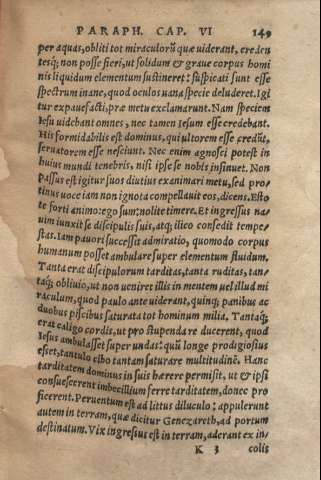 PARAPH. CAP. VI 149
per aquas, obliti tot miraculorũ quæ uiderant, creden
tesq; non posse fieri, ut solidum & graue corpus homi
nis liquidum elementum sustineret: suspicati sunt esse
spectrum inane, quod oculos uana specie deluderet. Igi
tur expauefacti, præ metu exclamarunt. Nam speciem
Iesu uidebant omnes, nec tamen Iesum esse credebant.
His formidabilis est dominus, qui ultorem esse credũt,
seruatorem esse nesciunt. Nec enim agnosci potest in
huius mundi tenebris, nisi ipse se nobis insinuet. Non
passus est igitur suos diutius exanimari metu, sed pro-
tinus uoce iam non ignota compellauit eos, dicens. Esto
te forti animo: ego sum: nolite timere. Et ingressus na-
uim iunxit se discipulis suis, atq; ilico consedit tempe-
stas. Iam pauori successit admiratio, quomodo corpus
humanum posset ambulare super elementum fluidum.
Tanta erat discipulorum tarditas, tanta ruditas, tan-
taq; obliuio, ut non ueniret illis in mentem uel illud mi
raculum, quod paulo ante uiderant, quinq; panibus ac
duobus pisciculis saturata tot hominum milia. Tantaq;
erat caligo cordis, ut pro stupenda re ducerent, quod
Iesus ambulasset super undas: quũ longe prodigiosius
esset, tantulo cibo tantam saturare multitudinẽ. Hanc
tarditatem dominus in suis hærere permisit, ut & ipsi
consuescerent imbecillium ferre tarditatem, donec pro
ficerent. Peruentum est ad littus diluculo: appulerunt
autem in terram, quæ dicitur Genezareth, ad portum
destinatum. Vix ingressus est in terram, aderant ex in-
K 3 colis